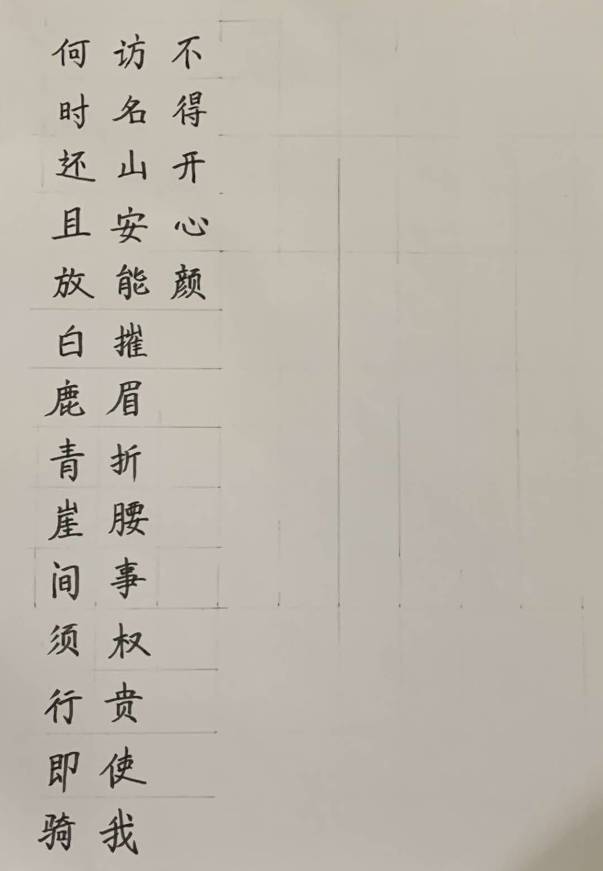 何时还且放白鹿青崖间须行即骑
访名山安能摧眉折腰事权贵使我
不得开心颜